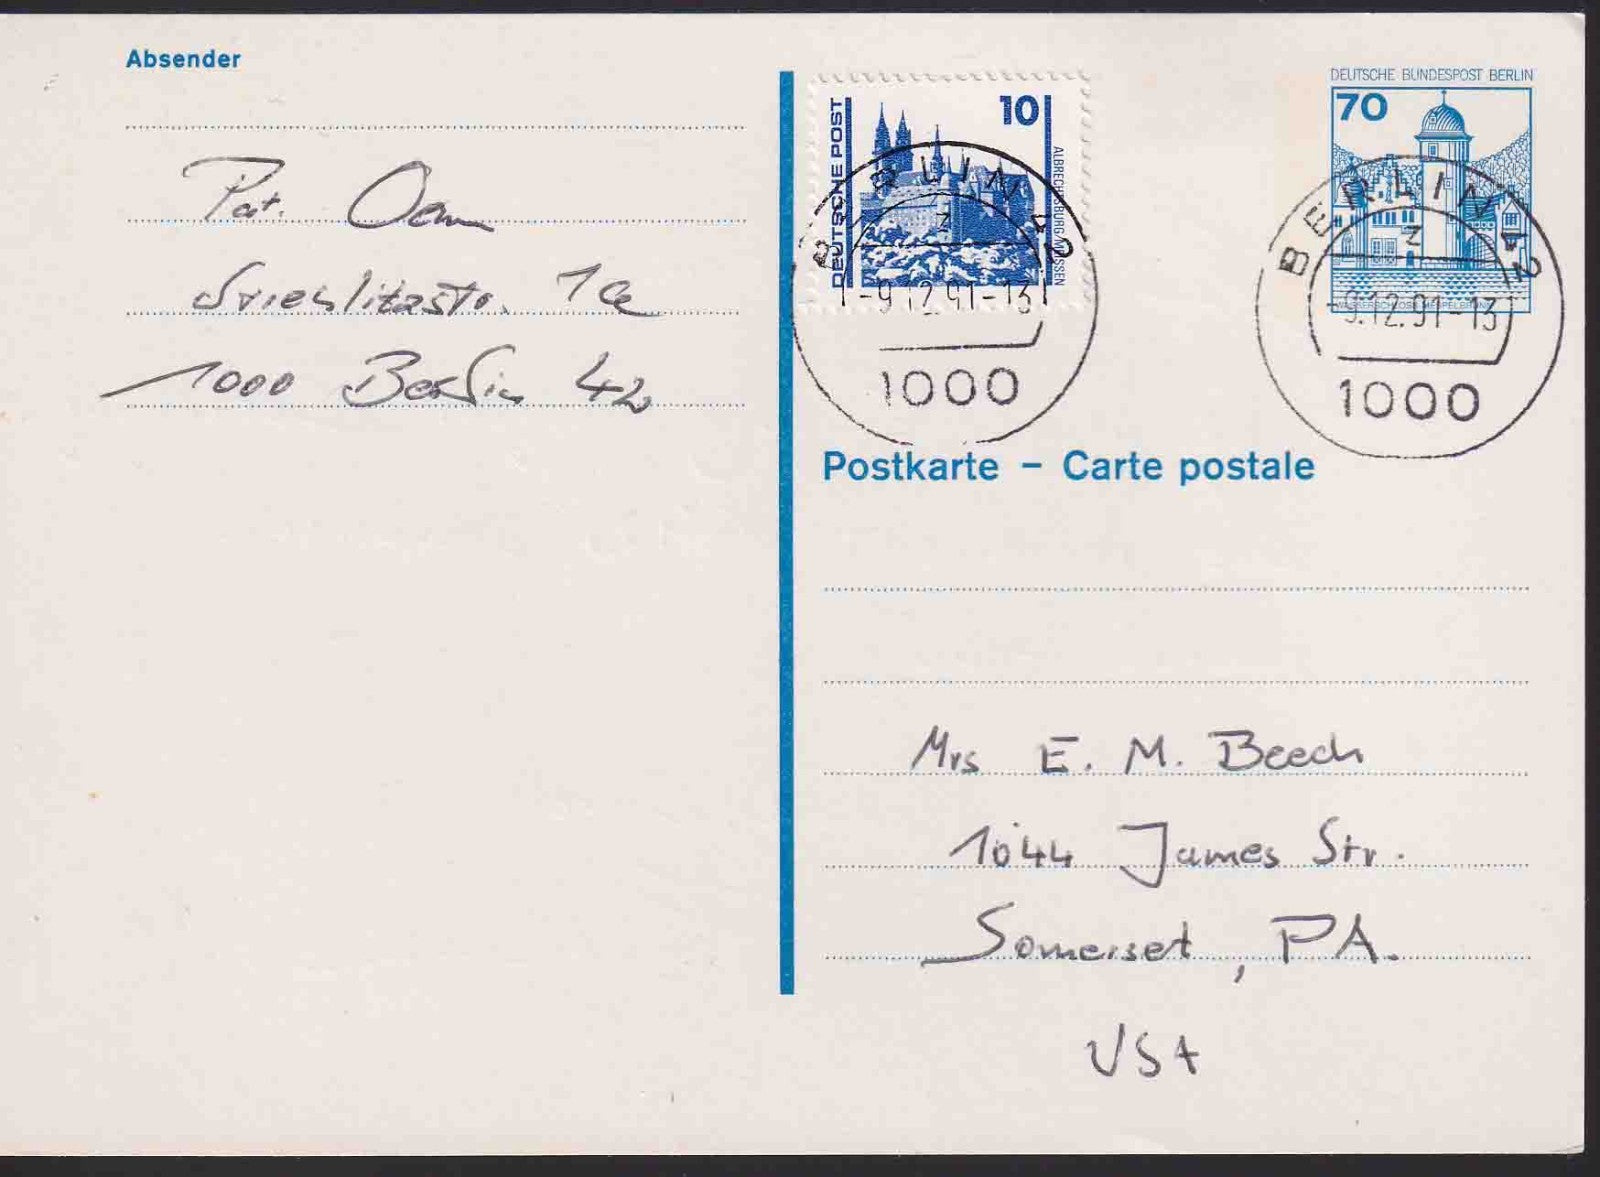 Absender
Pat.
1a
1000 Berlin 42
10
DEUTSCHE POST
ALBRECHTSBURG MEISSEN
BERLIN 42
z
-9.12.91-13
1000
DEUTSCHE BUNDESPOST BERLIN
70
WASSERSCHLOSS MESPELBRUNN
BERLIN 42
z
-9.12.91-13
1000
Postkarte – Carte postale
Mrs E. M. Beech
1044 James Str.
Somerset, PA.
USA